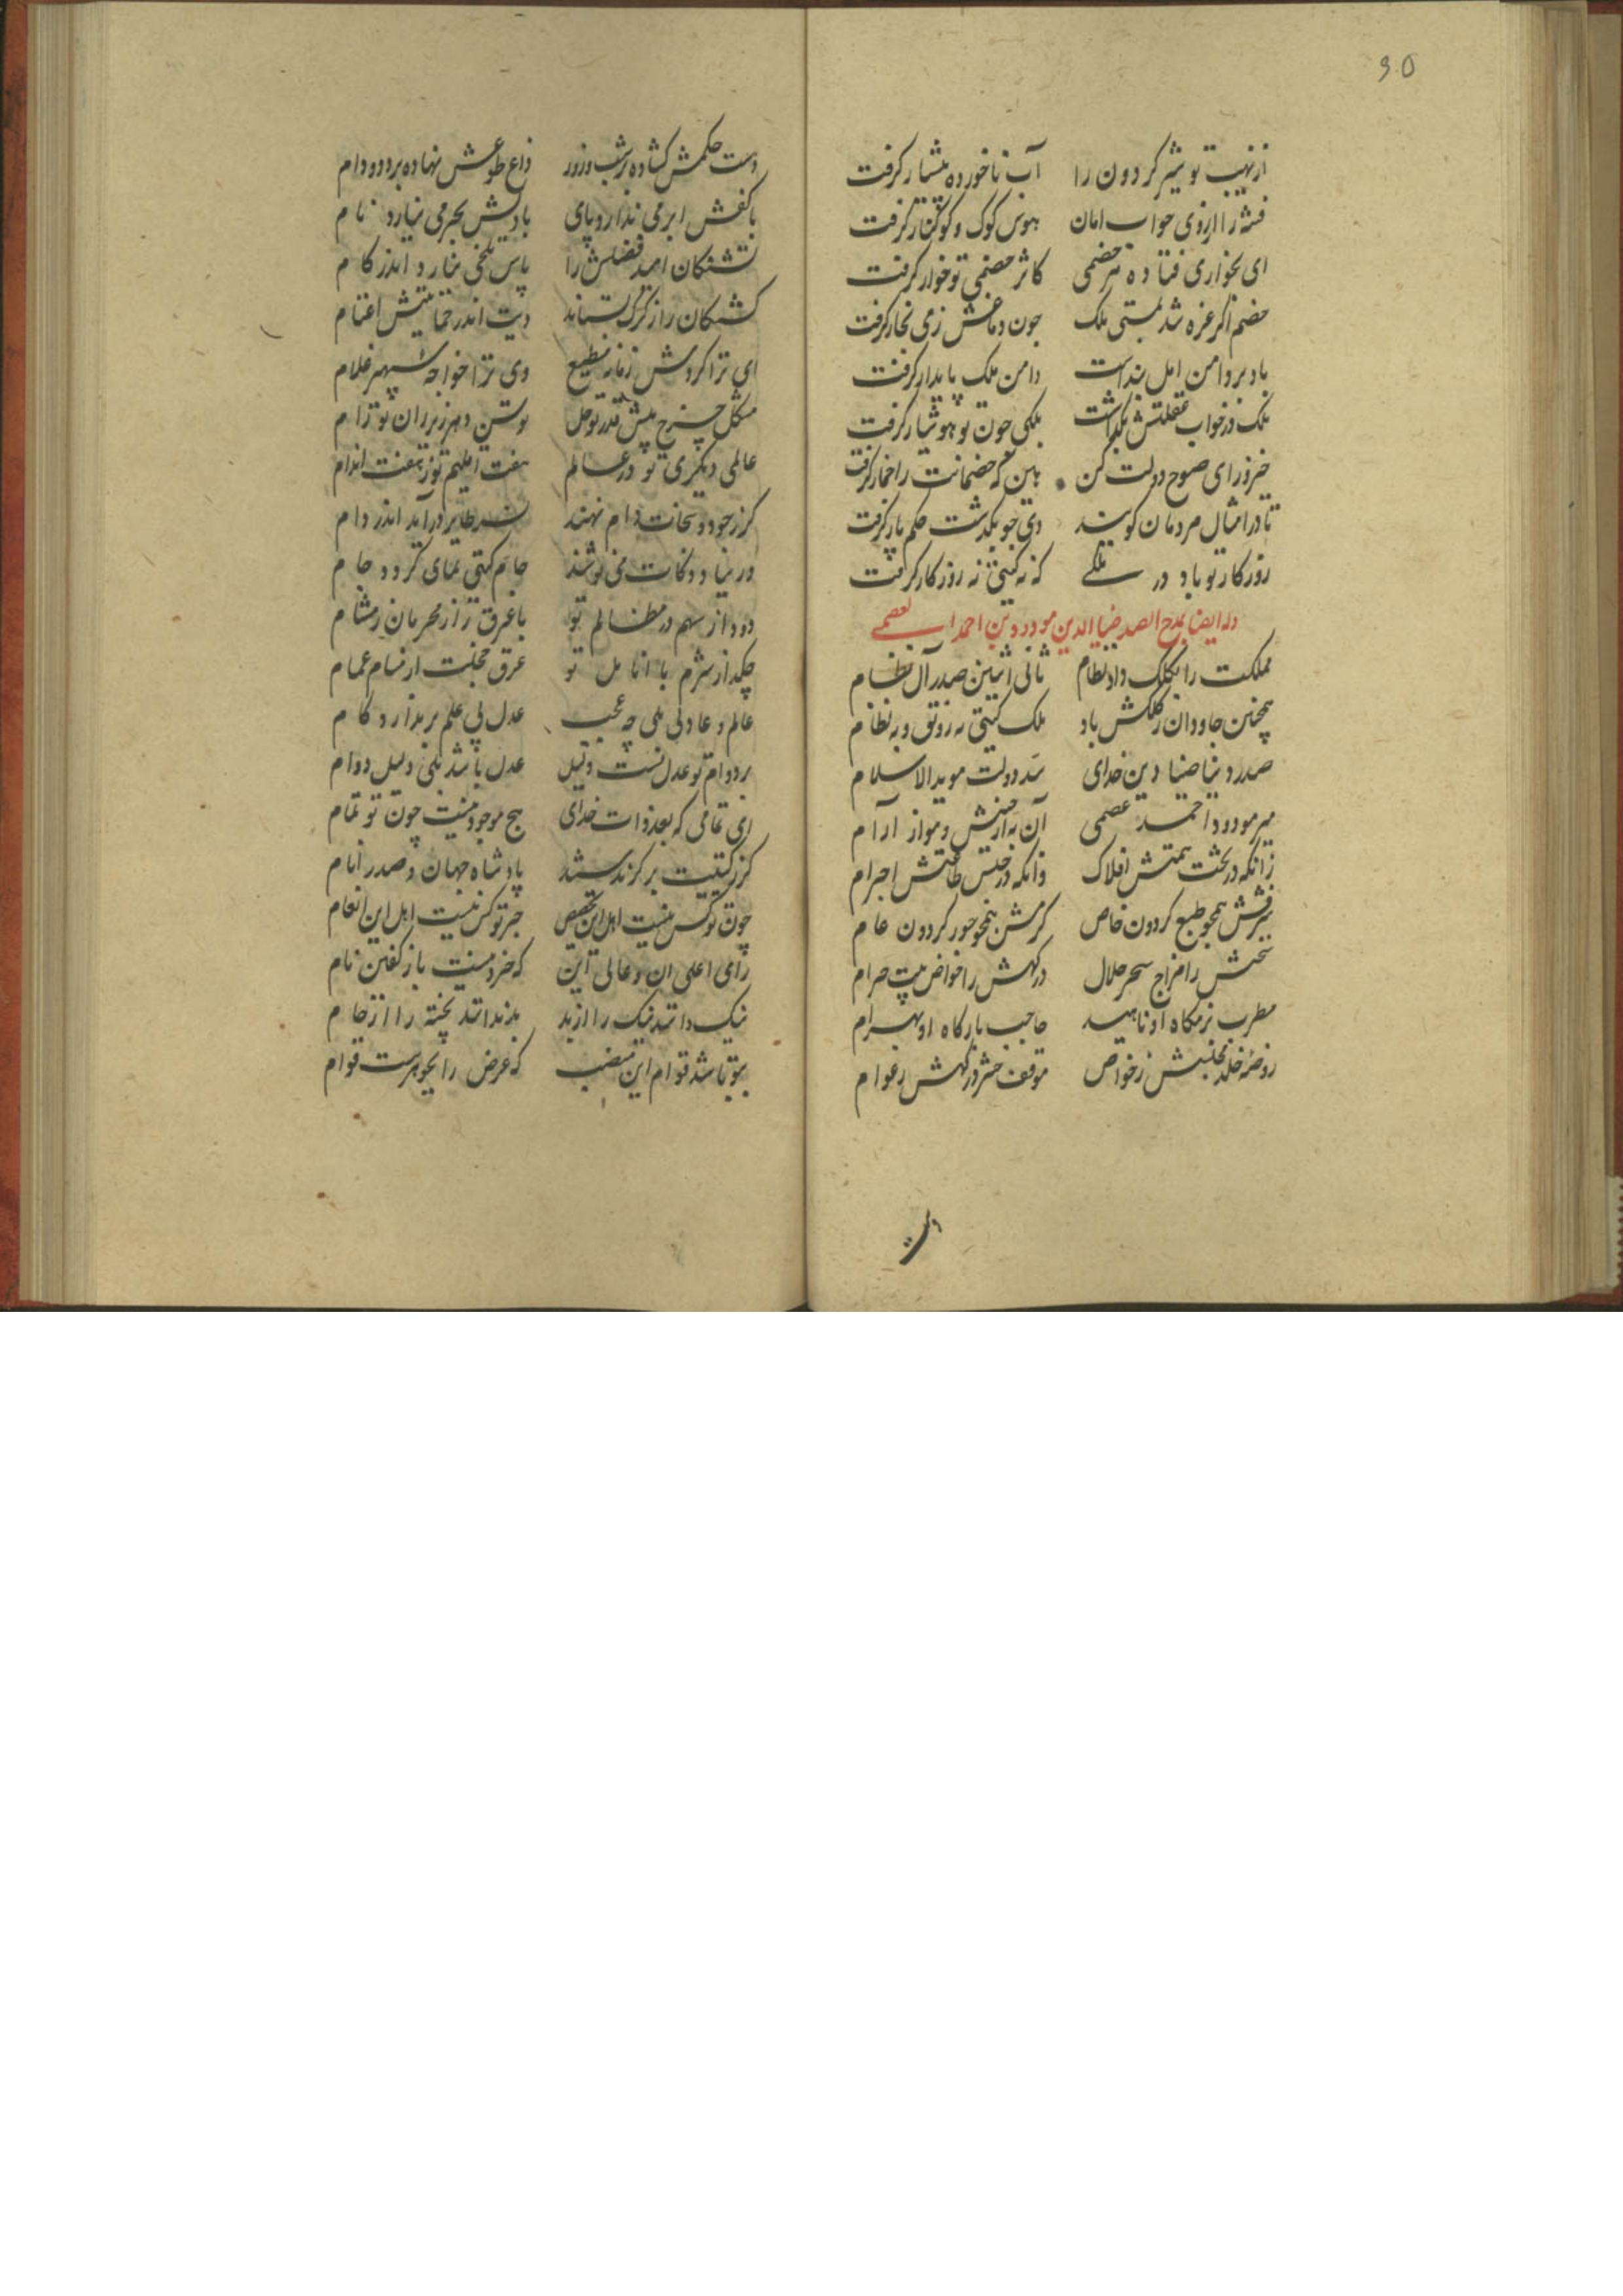 30
از نهیب تو شیر کردون را آب ناخورده پیشیار کرفت
فتنه را ارزوی خواب امان بهوس کوک و کوکنار کرفت
ای بخواری فتاده هر خصمی کاثر خصمی تو خوار کرفت
خصم اکر غره شد بمستی ملک چون دماغش زمی بخار کرفت
باد بر دامن امل بنداست دامن ملک پایدار کرفت
ملک در خواب غفلتش بکذاشت ملکی چون تو هوشیار کرفت
خیز و رای صبوح دولت کن هین که خصمانت را خمار کرفت
تا در امثال مردمان کویند دی چو بکذشت حکم پار کرفت
روزکار تو باد در ملکی که نه کیتی نه روزکار کرفت
وله ایضا بمدح الصدر ضیا الدین مودود بن احمد العصمی
مملکت را بکلک داد نظام ثانی اثنین صدر آل نظام
همچنین جاودان ز کلکش باد ملک کیتی به رونق و به نظام
صدر دنیا ضیا دین خدای سد دولت موید الاسلام
میر مودود احمد عصمی آن به از جنبش و مواز ارام
زانکه در تحت همتش افلاک وانکه در جنس طاعتش اجرام
برقش همچو طبع کردون خاص کرمش همچو جور کردون عام
سخنش را مزاج سحر حلال درکهش را خواص بیت حرام
مطرب بزمکاه او ناهید حاجب بارکاه او بهرام
روضه خلد مجلسش ز خواص موقف حشر درکهش ز عوام
دست
دست حکمش کشاده بر شب و روز داغ طوعش نهاده بر دد و دام
با کفش ابر می ندارد پای با دلش بحر می نیارد نام
تشنکان امید فضلش را یاس تلخی نیارد اندر کام
کشتکان را ز کرک بستاند دیت اندر حمایتش اغنام
ای ترا کردش زمانه مطیع وی ترا خواجه سپهر غلام
مشکل چرخ پیش قدر تو حل توسن دهر زیر ران تو رام
عالمی دیکری تو در عالم هفت اقلیم تو ز هفت اندام
کر ز جود و سخات دام نهند نسر طایر درآید اندر دام
ور بیاد ذکات می نوشند جام کیتی نمای کردد جام
دود از سهم در مظالم تو با عرق راز مجرمان ز مشام
چکد از شرم با انامل تو عرق خجلت از مسام غمام
عالم و عادلی بلی چه عجب عدل بی علم بر ندارد کام
بر دوام تو عدل تست دلیل عدل باشد بلی دلیل دوام
ای تمامی که بعد ذات خدای هیچ موجود نیست چون تو تمام
کز کتیبت بر کزیدستند پادشاه جهان و صدر انام
چون تو کس نیست اهل این تخصیص جز تو کس نیست اهل این انعام
رای اعلی ان و عالی این که خرد نیست باز کفتن نام
نیک دانند نیک را از بد بد ندانند پخته را از خام
بتو باشد قوام این منصب که عرض را بجوهرست قوام